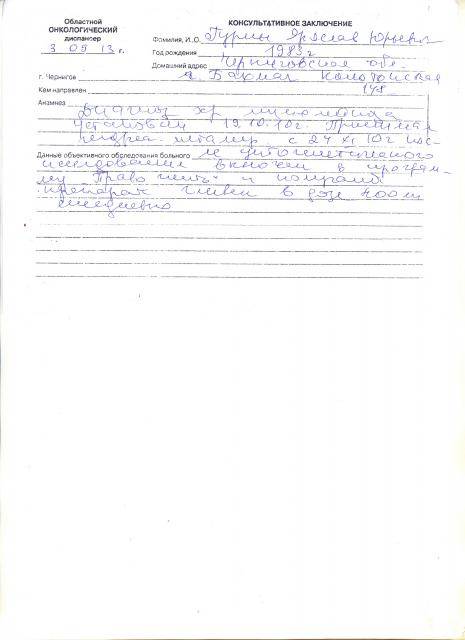 Областной
ОНКОЛОГИЧЕСКИЙ
диспансер
3 09 13 г.
г. Чернигов
КОНСУЛЬТАТИВНОЕ ЗАКЛЮЧЕНИЕ
Фамилия, И.,О. Гурин Ярослав Юрьевич
Год рождения 1983 г
Домашний адрес Черниговская обл.
г. Бахмач
Кем направлен
Анамнез Диагноз хр миелолейкоз
установлен 19.10.10г. Принимал
с 24 XI 10г пос-
Данные объективного обследования больного ле цитогенетического
исследования включен в програм-
му "Право жить" и получает
препарат гливек в дозе 400 мг
ежедневно